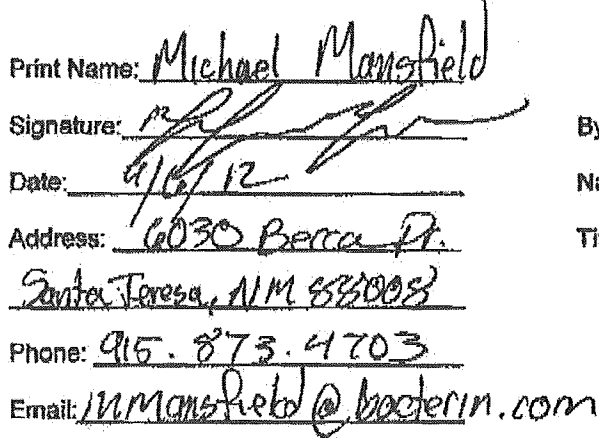 Print Name: Michael Mansfield
Signature:
By
Date: 4/6/12
Na
Address: 6030 Berca Dr.
Ti
Santa Teresa, NM 88008
Phone: 915.873.4703
Email: mmansfield@bacterin.com